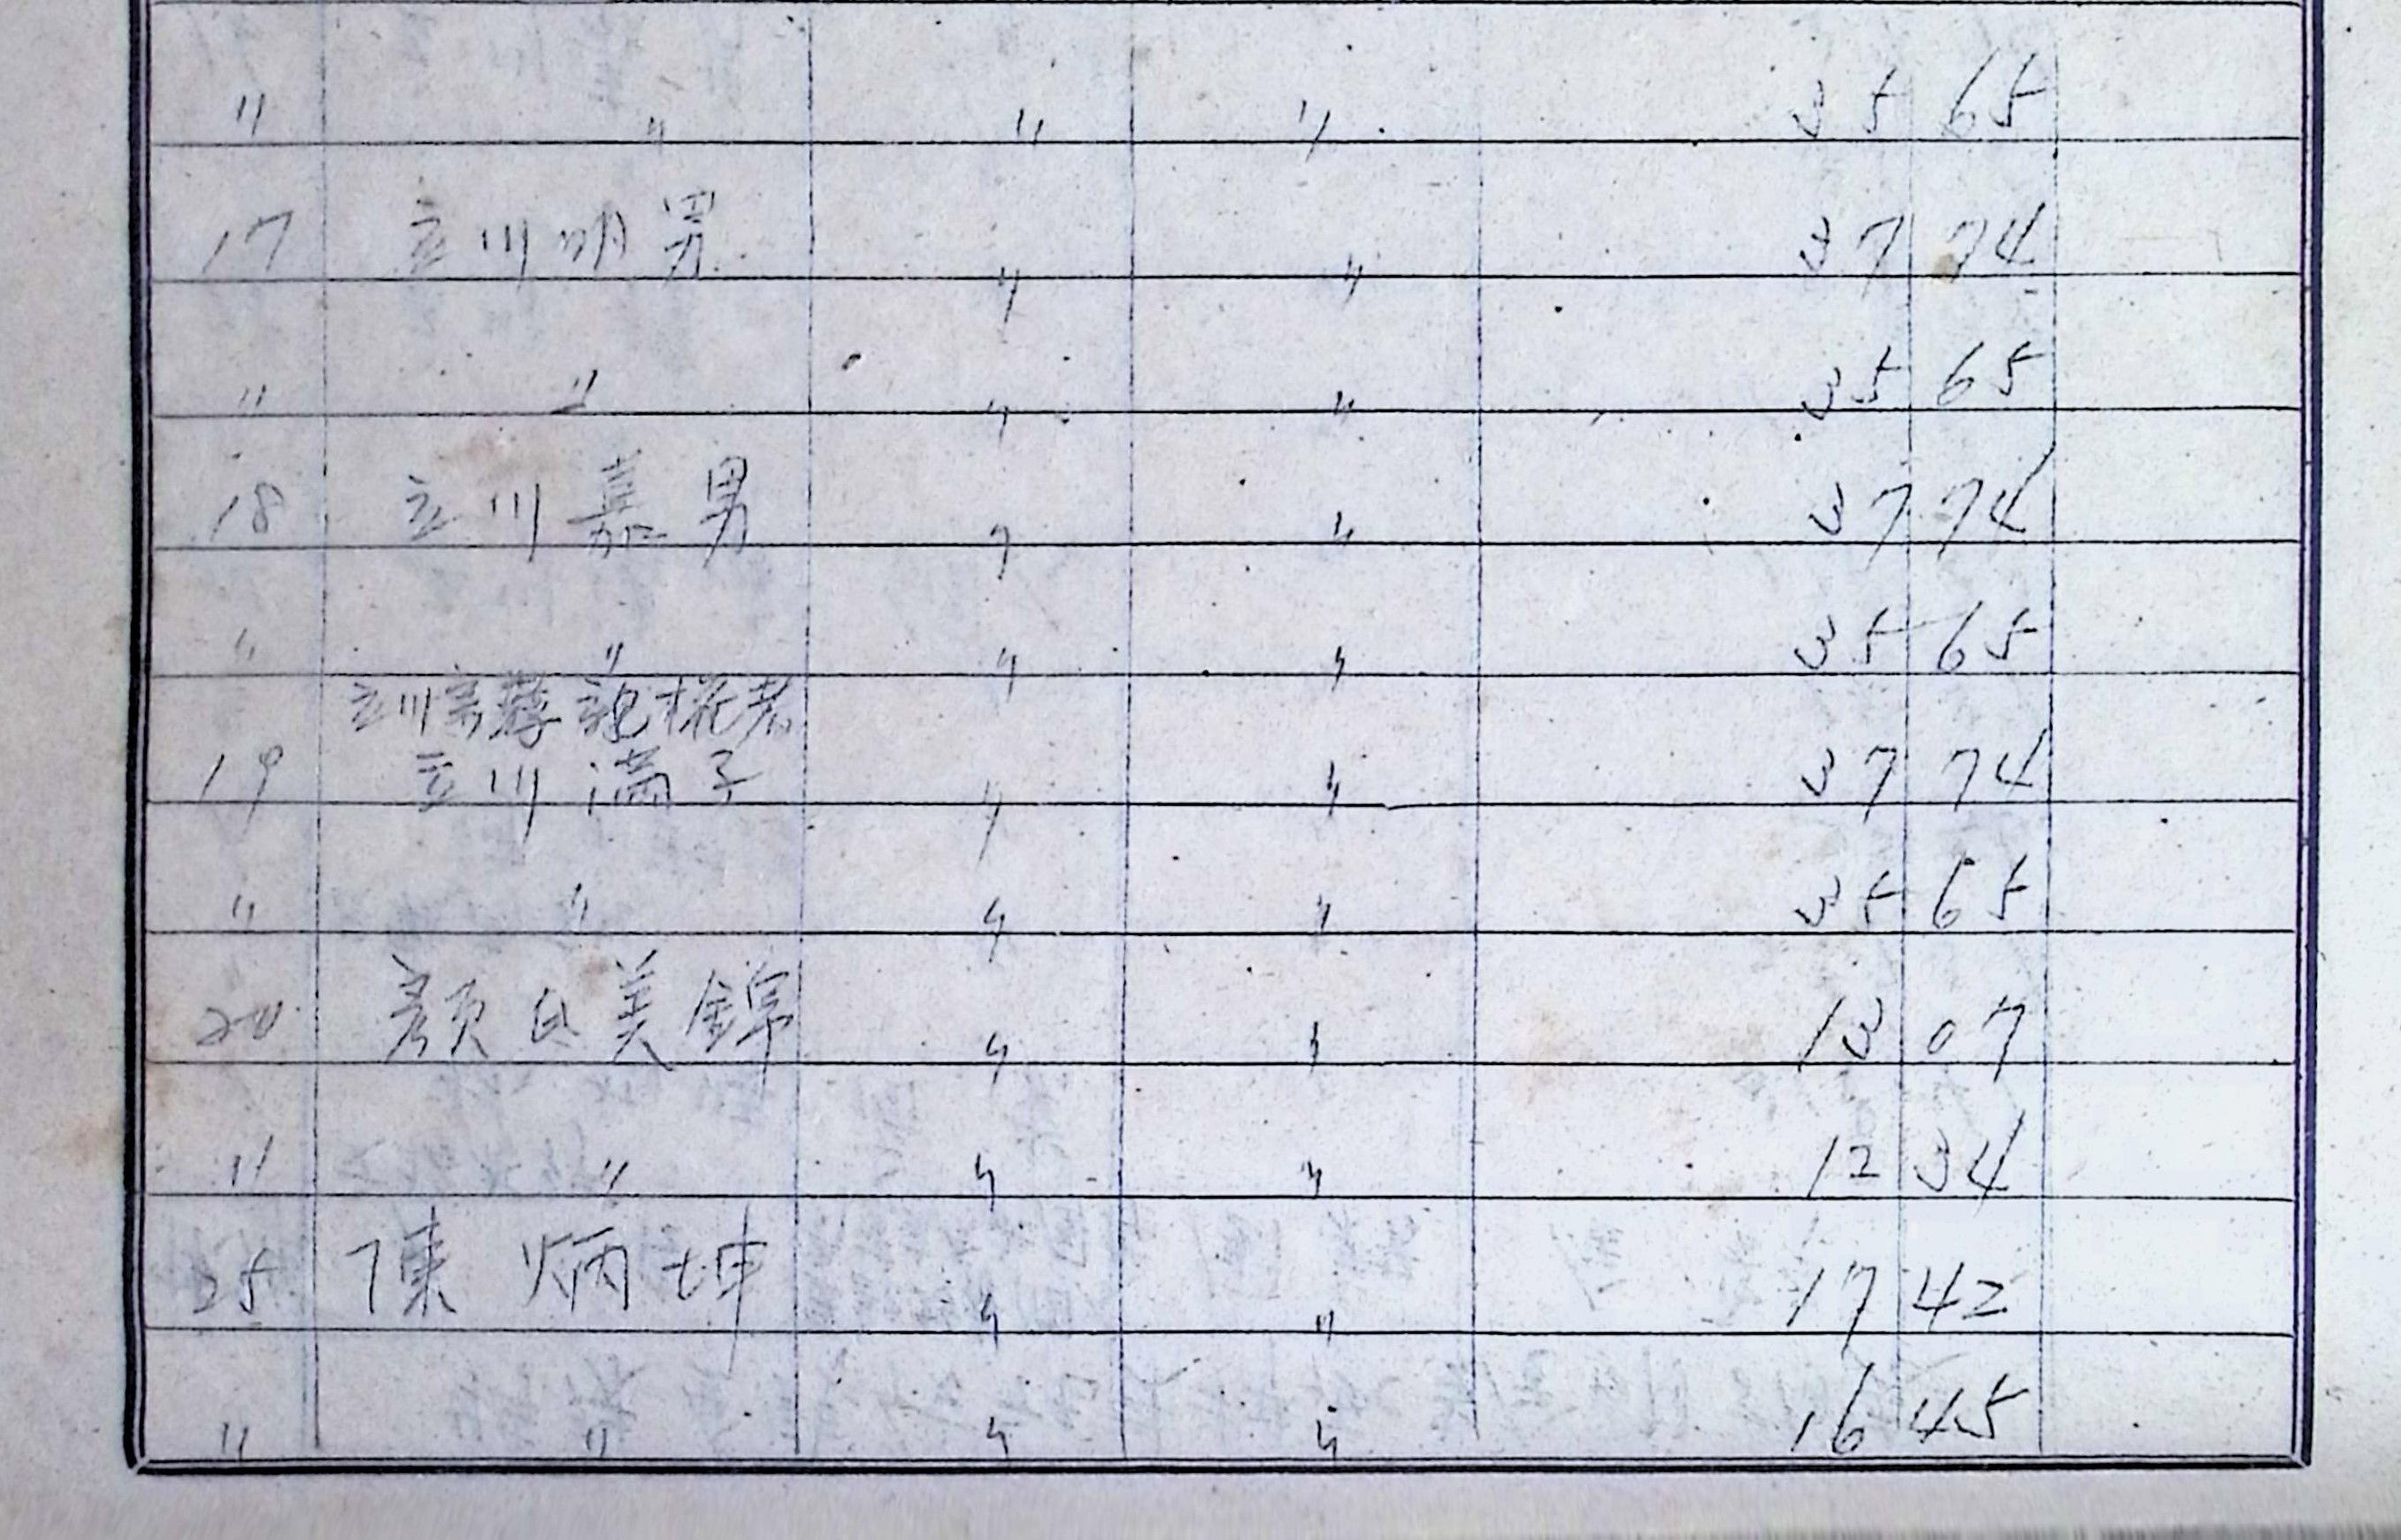 〃 〃 〃 〃 35 65
17 立川明男 〃 〃 37 74
〃 〃 〃 〃 35 65
18 立川嘉男 〃 〃 37 74
〃 〃 〃 〃 35 65
立川
19 立川満子 〃 〃 37 74
〃 〃 〃 〃 35 65
20 顔氏美錦 〃 〃 13 07
〃 〃 〃 〃 12 34
25 陳炳坤 〃 〃 17 42
〃 〃 〃 〃 16 45